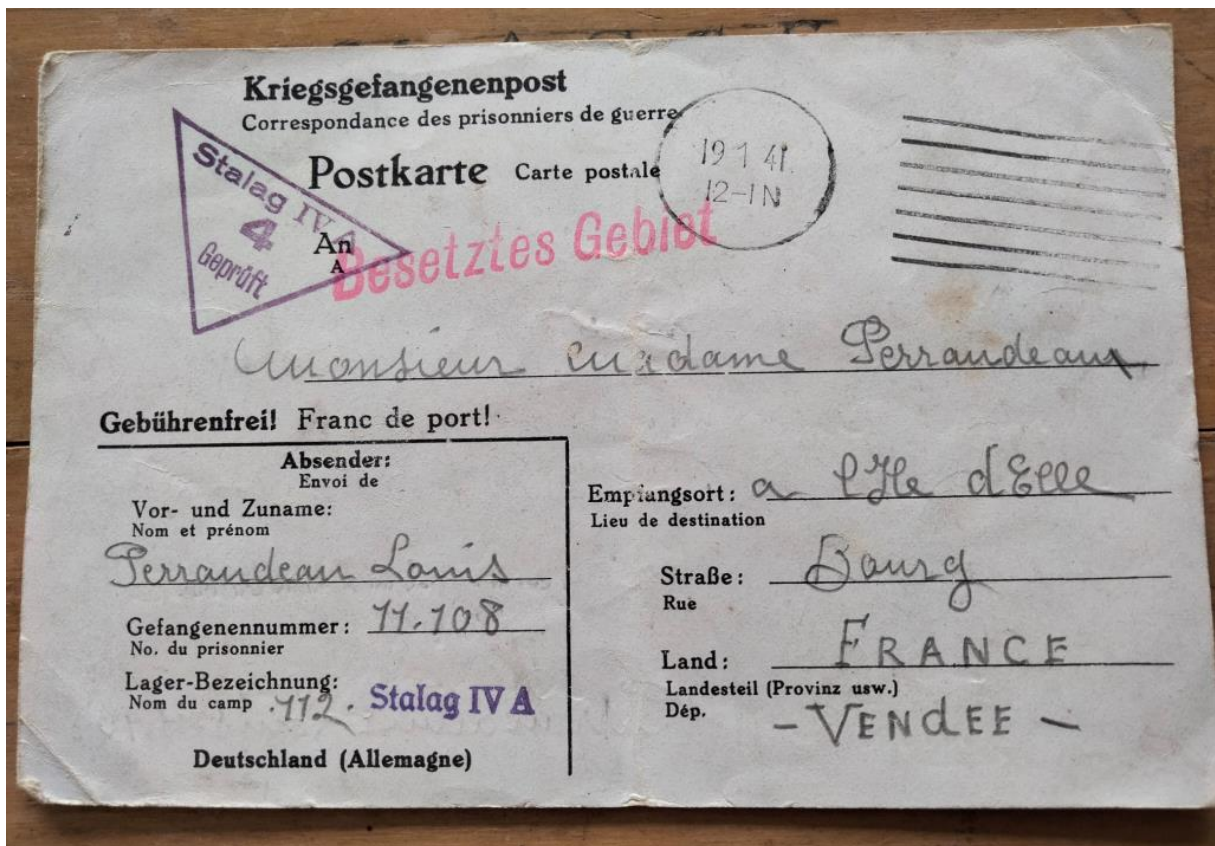 Kriegsgefangenenpost
Correspondance des prisonniers de guerre
Postkarte Carte postale
19 1 41.
12-1 N
Stalag IV A
4
Geprüft
An
A
Besetztes Gebiet
Monsieur Madame Perraudeau
Gebührenfrei! Franc de port!
Absender:
Envoi de
Vor- und Zuname:
Nom et prénom
Perraudeau Louis
Gefangenennummer: 11.108
No. du prisonnier
Lager-Bezeichnung:
Nom du camp 112. Stalag IV A
Deutschland (Allemagne)
Empfangsort: a l'Ile d'Elle
Lieu de destination
Straße: Bourg
Rue
Land: FRANCE
Landesteil (Provinz usw.)
Dép. - VENDEE -